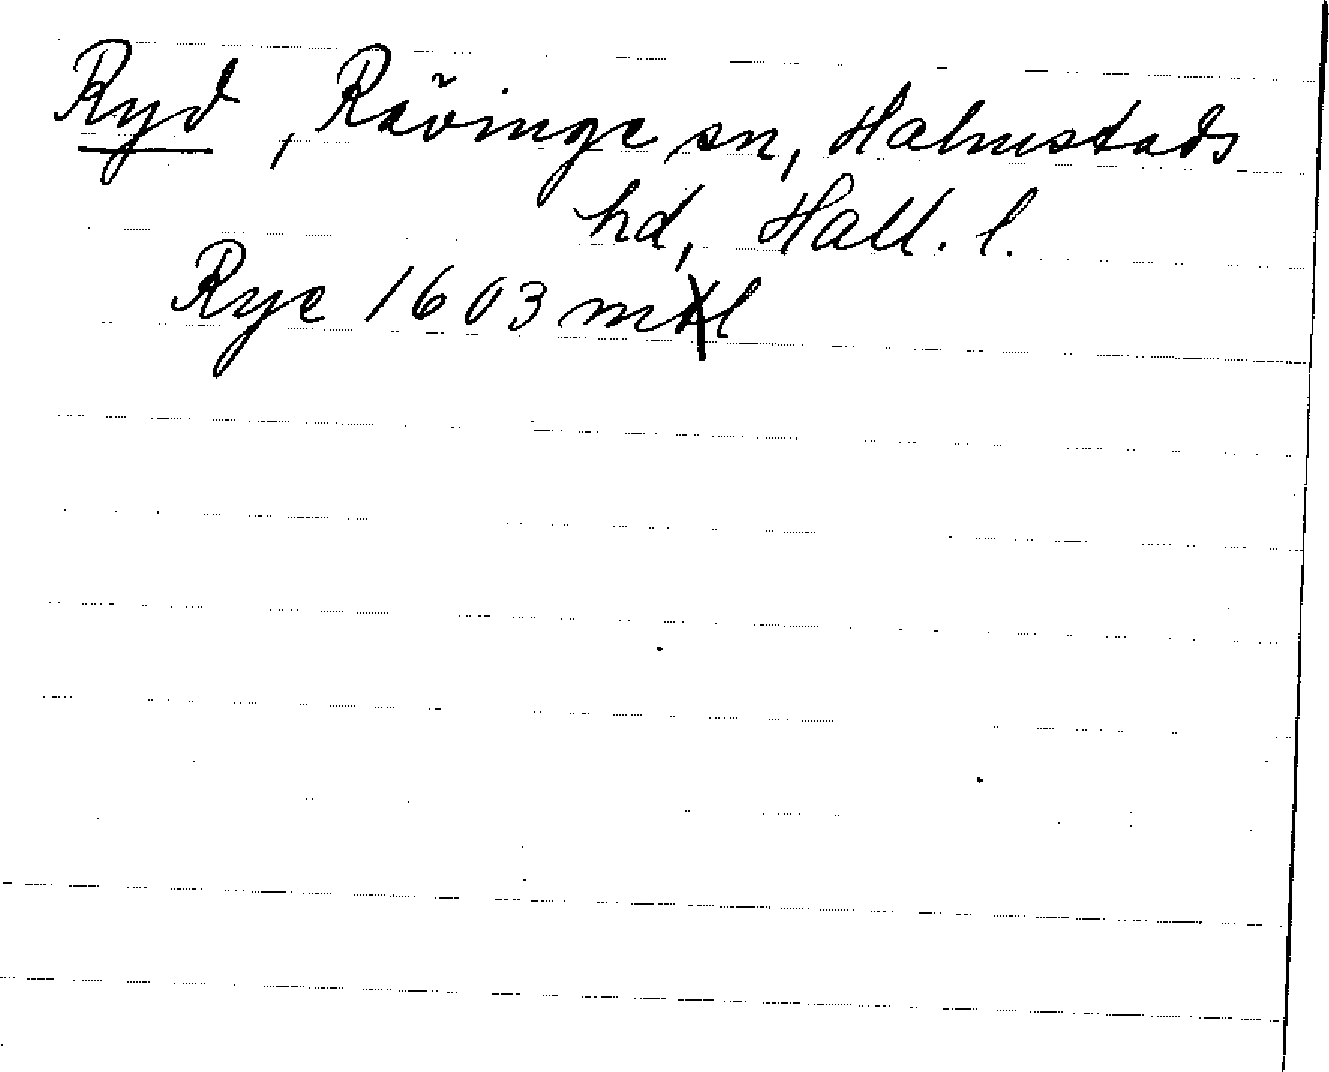 Ryd, Rävinge sn, Halmstads
hd, Hall. l.
Rye 1603 mtl